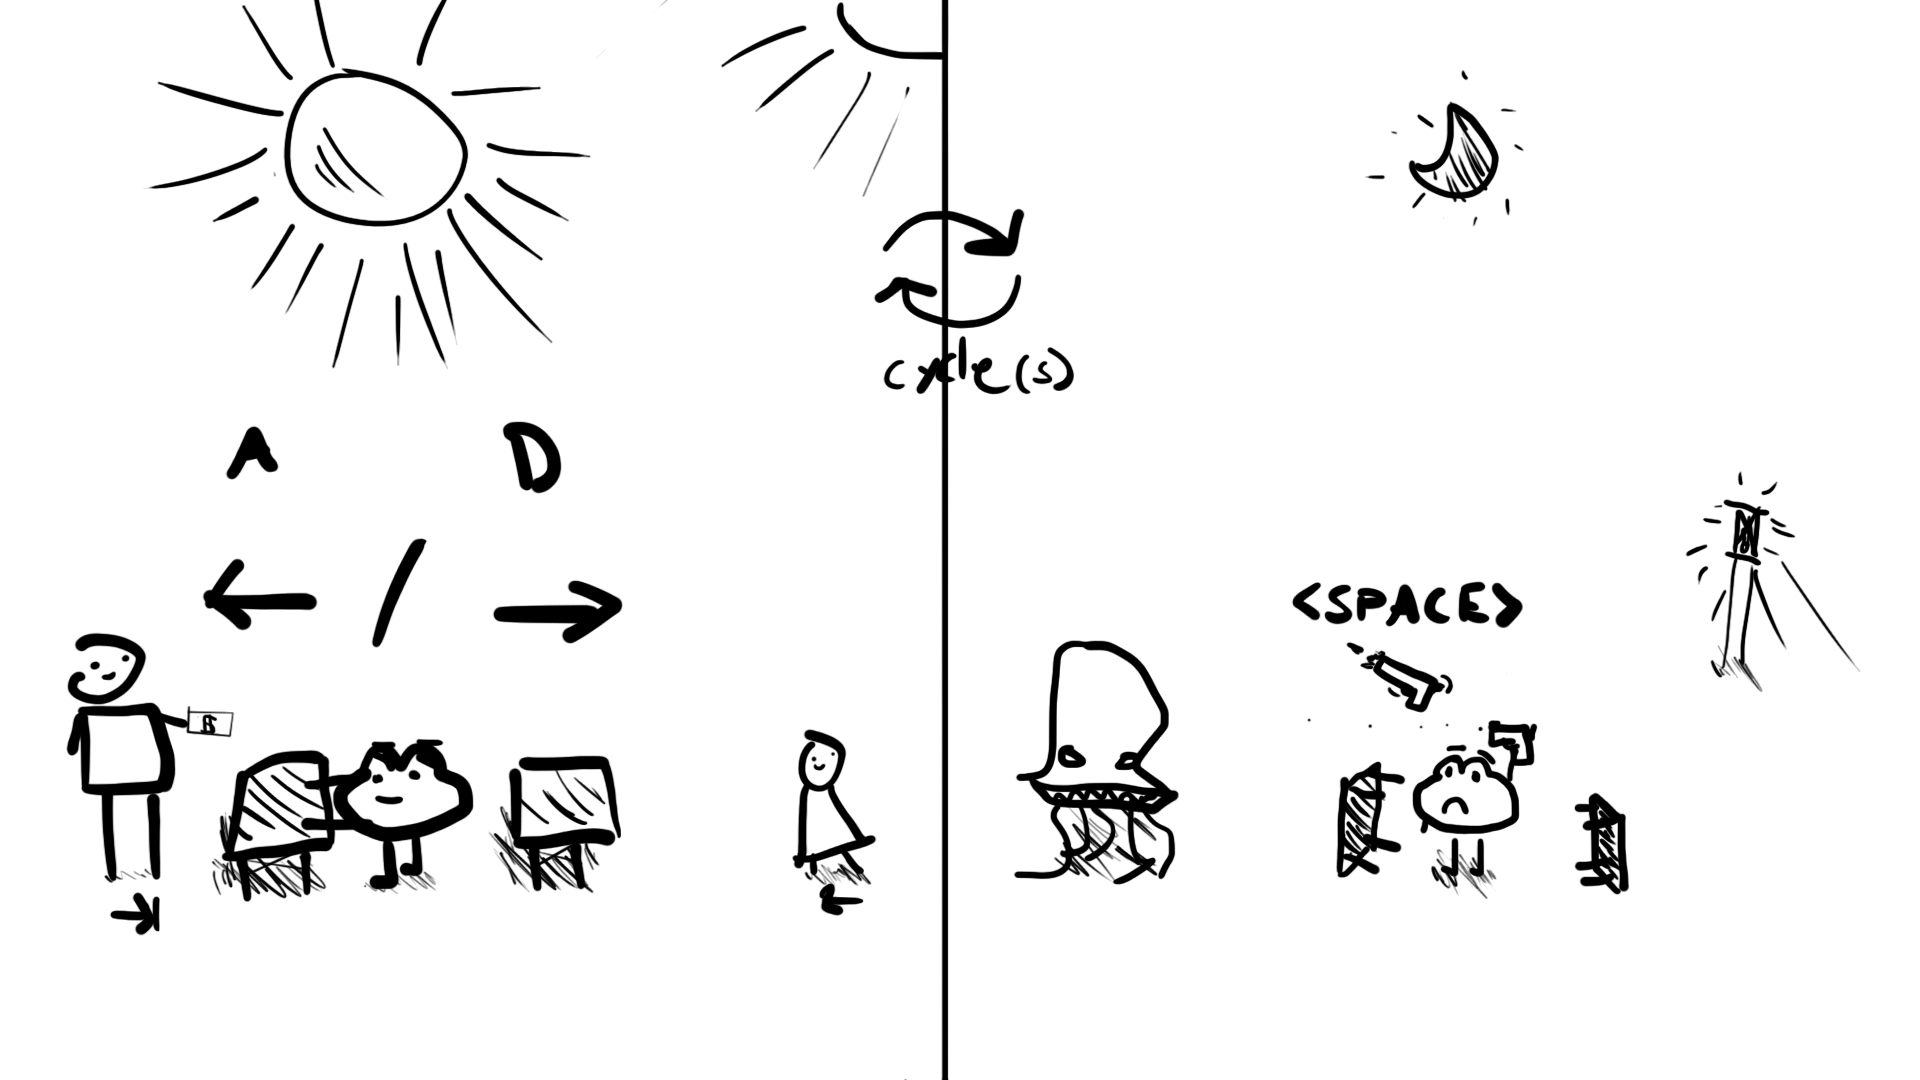 cycle(s)
A D
/
B
<SPACE>